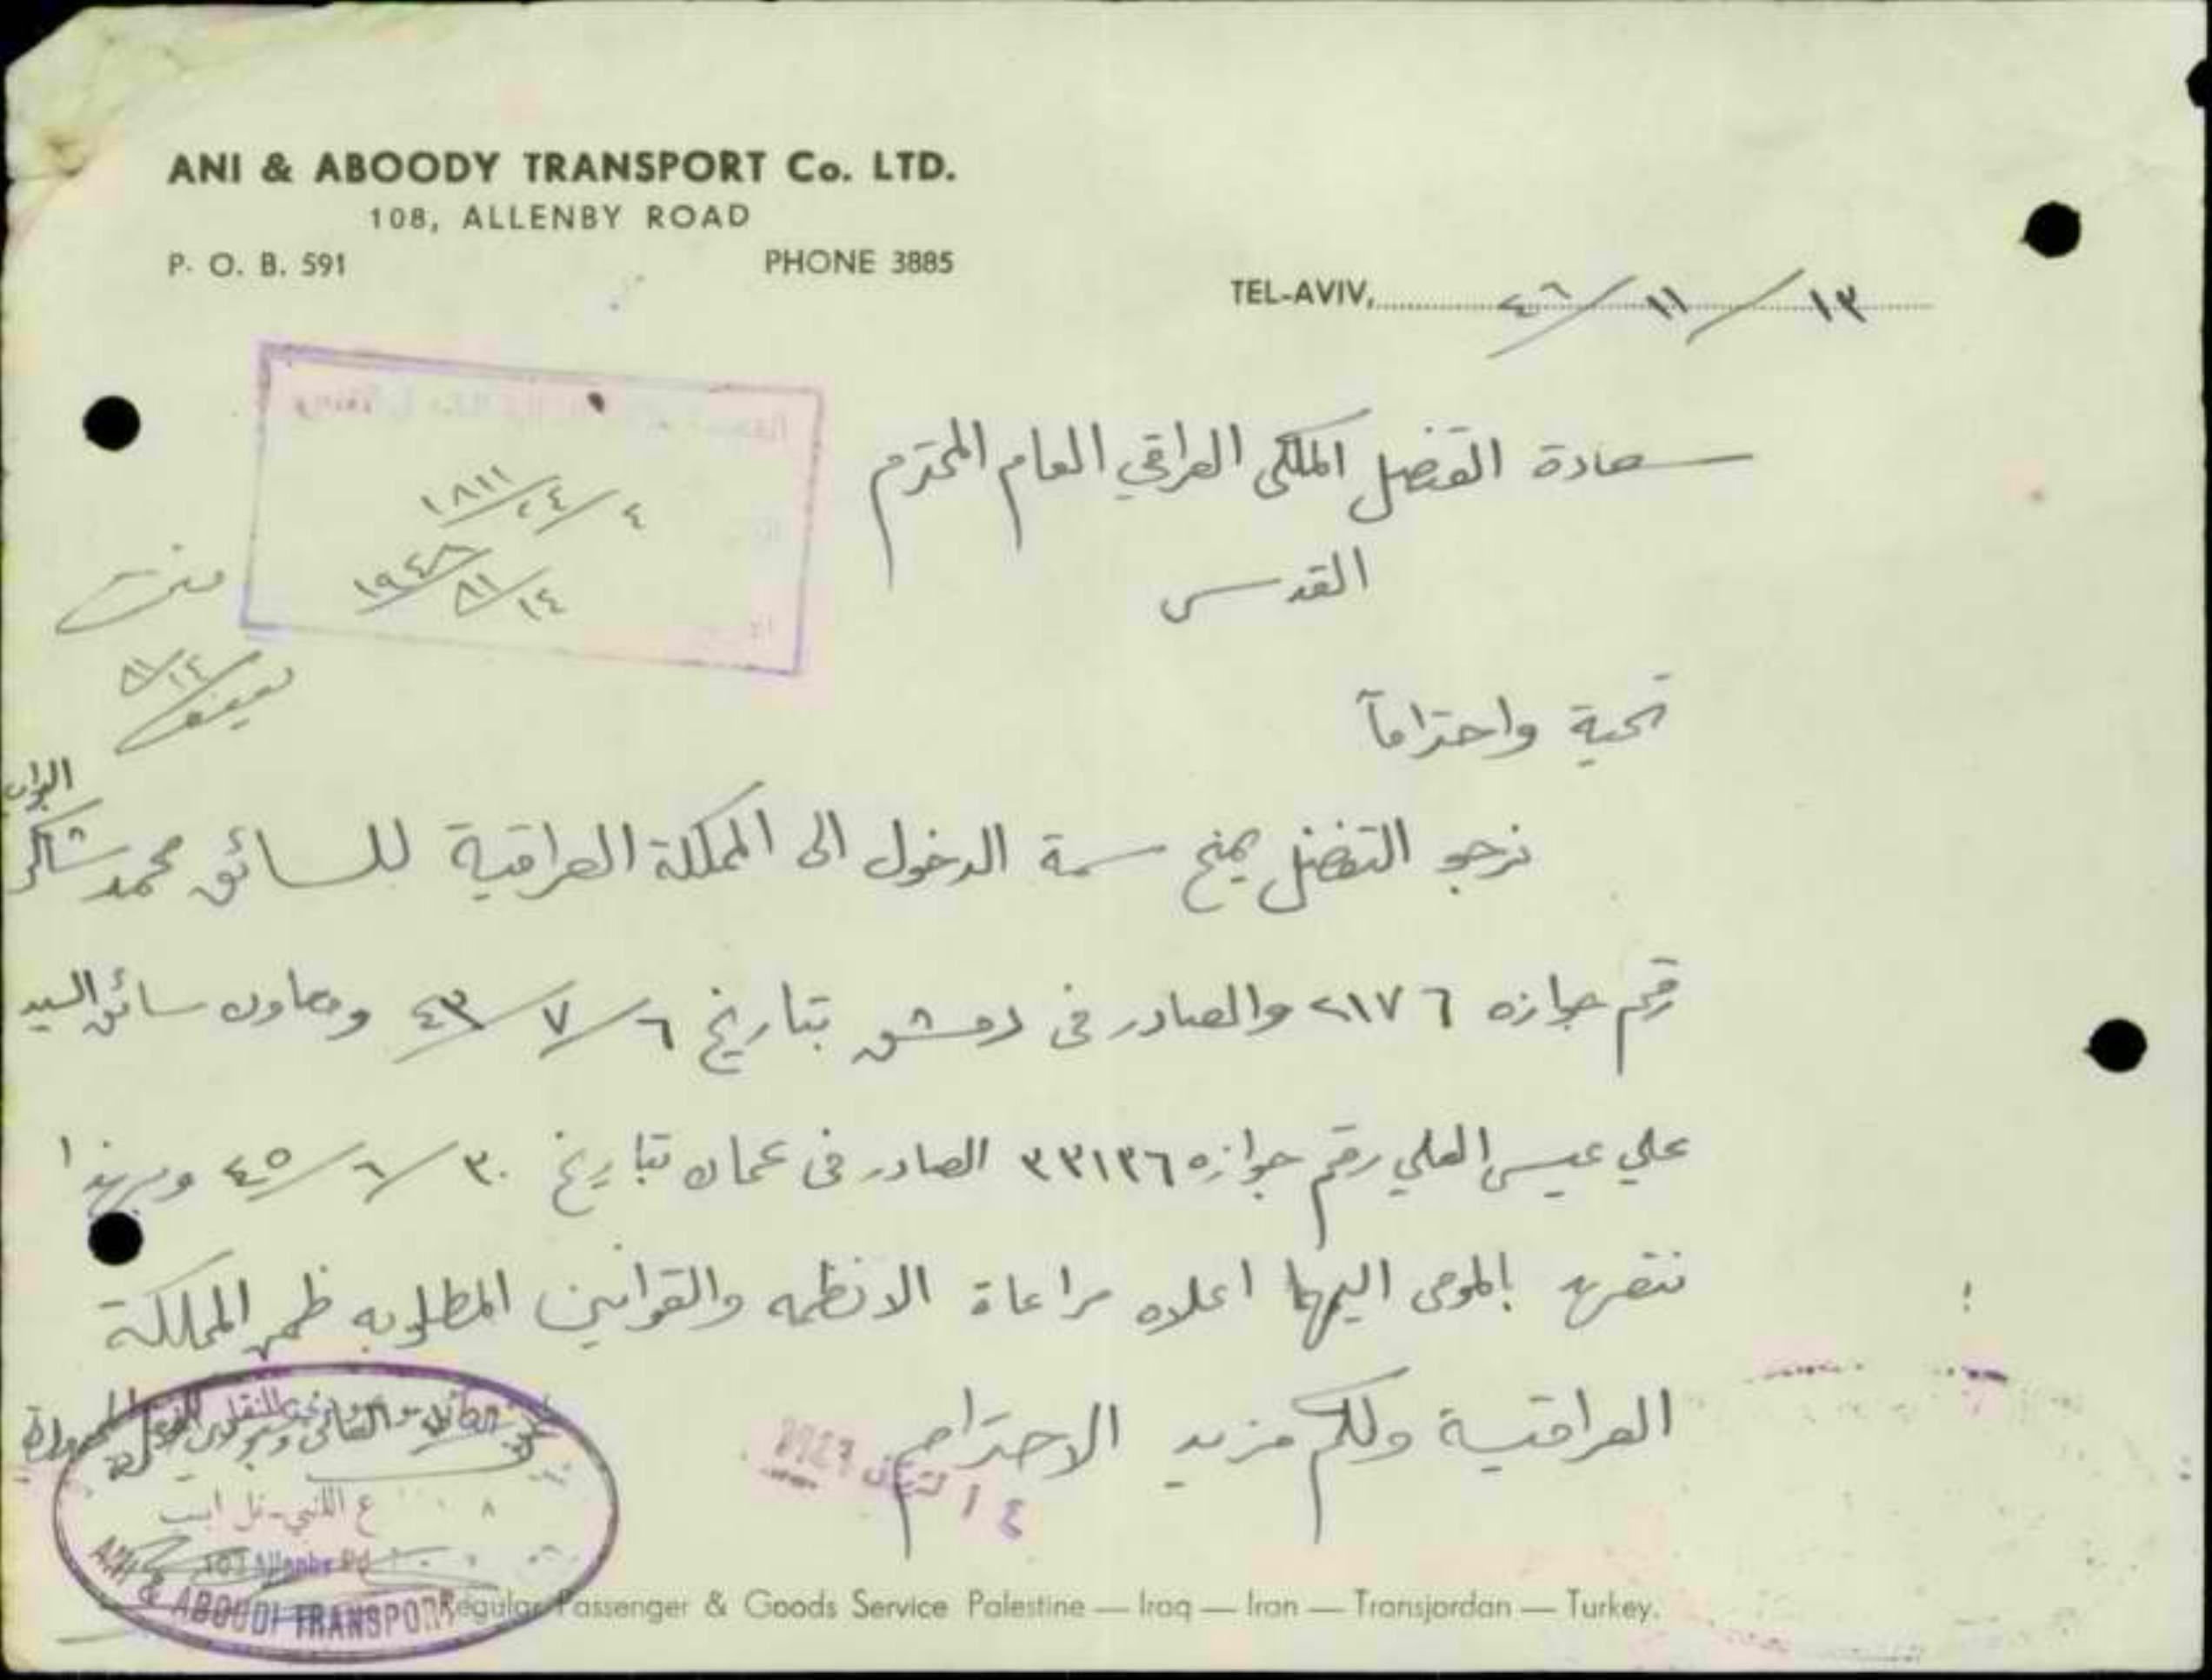 ANI & ABOODY TRANSPORT Co. LTD.
108, ALLENBY ROAD
P. O. B. 591 PHONE 3885
TEL-AVIV, ١٣/١١/٤٦
٤/٤/١٨١١
١٤/١١/١٩٤٦
سعادة القنصل الملكي العراقي العام المحترم
القدس
١٤/١١
تحية واحتراماً
نرجو التفضل بمنح سمة الدخول الى المملكة العراقية للسائق محمد شاكر
رقم جوازه ٢١٧٦ والصادر في دمشق بتاريخ ٦/٧/٤٣ ومعاون سائق السيد
علي عيسى العلي رقم جوازه ٣٣١٣٦ الصادر في عمان بتاريخ ٣٠/٦/٤٥ وبهذا
نتعهد بالمومى اليهما اعلاه مراعاة الانظمه والقوانين المطلوبه ظمن المملكة
العراقية ولكم مزيد الاحترام
ع اللنبي - تل ابيب
Allenby Rd
ANI & ABOUDI TRANSPORT
Regular Passenger & Goods Service Palestine — Iraq — Iran — Transjordan — Turkey.